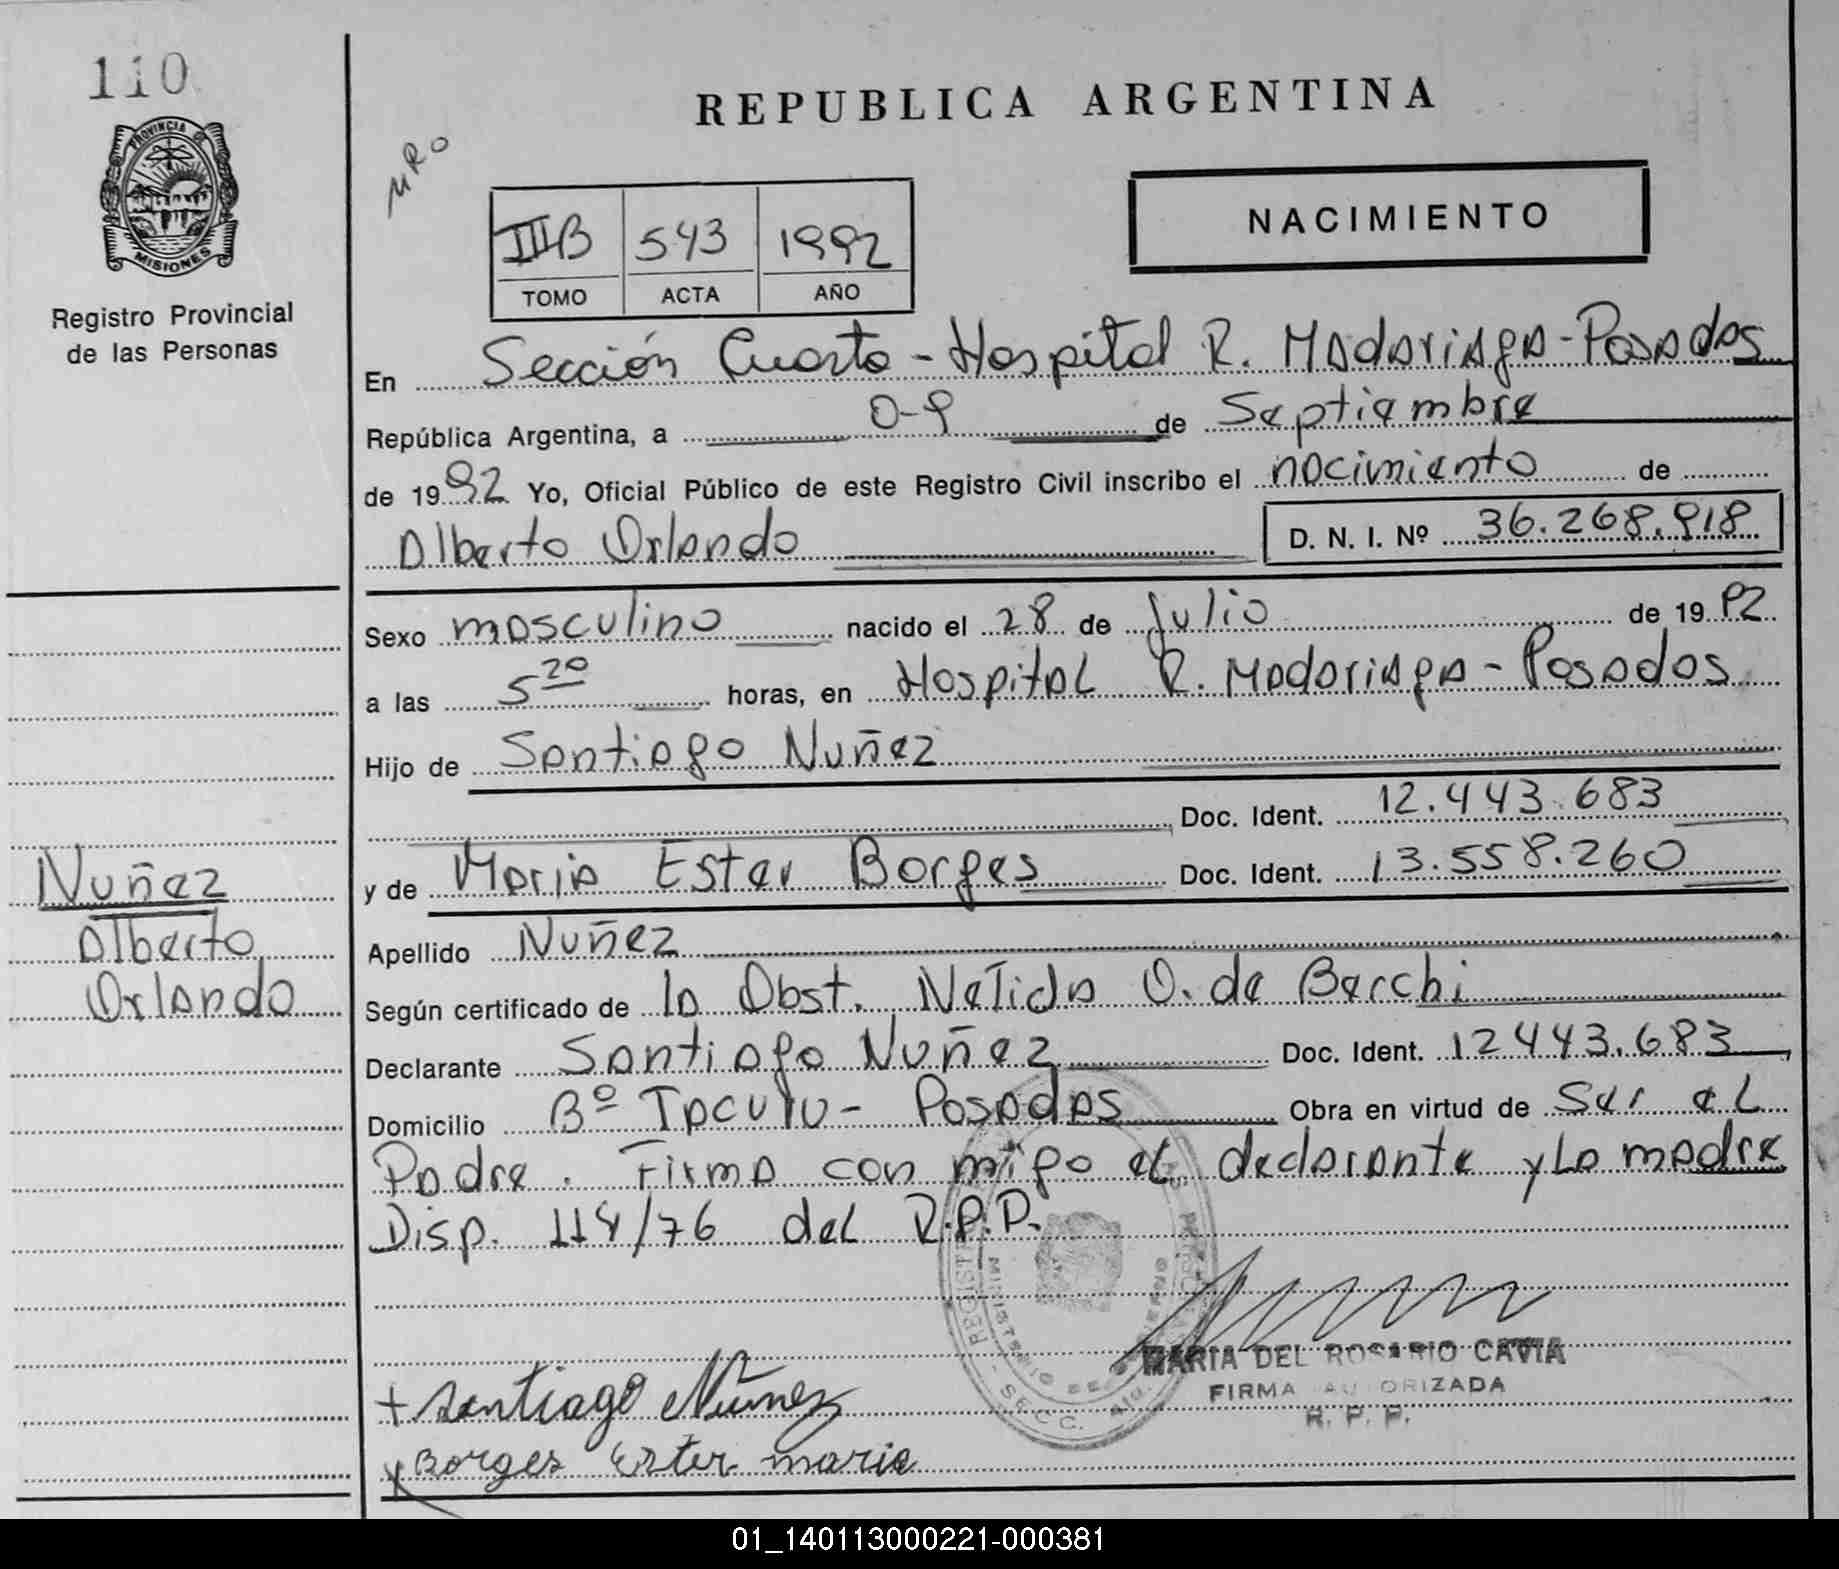 110
PROVINCIA DE
MISIONES
Registro Provincial
de las Personas
Nuñez
Alberto
Orlando
REPUBLICA ARGENTINA
NRO
IIIB 543 1992
TOMO ACTA AÑO
NACIMIENTO
En Sección Cuarta - Hospital R. Madariaga - Posadas
República Argentina, a 0-9 de Septiembre
de 1992 Yo, Oficial Público de este Registro Civil inscribo el nacimiento de
Alberto Orlando D. N. I. Nº 36.268.918
Sexo masculino nacido el 28 de Julio de 1992
a las 5 20 horas, en Hospital R. Madariaga - Posadas
Hijo de Santiago Nuñez
Doc. Ident. 12.443.683
y de Maria Ester Borges Doc. Ident. 13.558.260
Apellido Nuñez
Según certificado de la Obst. Nelida O. de Bacchi
Declarante Santiago Nuñez Doc. Ident. 12443.683
Domicilio Bº Tacurú - Posadas Obra en virtud de Ser el
Padre. Firma con migo el declarante y La madre
Disp. 114/76 del R.P.P.
MARIA DEL ROSARIO CAVIA
FIRMA AUTORIZADA
R. P. P.
+ Santiago Núñez
x Borges Ester maria
01_140113000221-000381